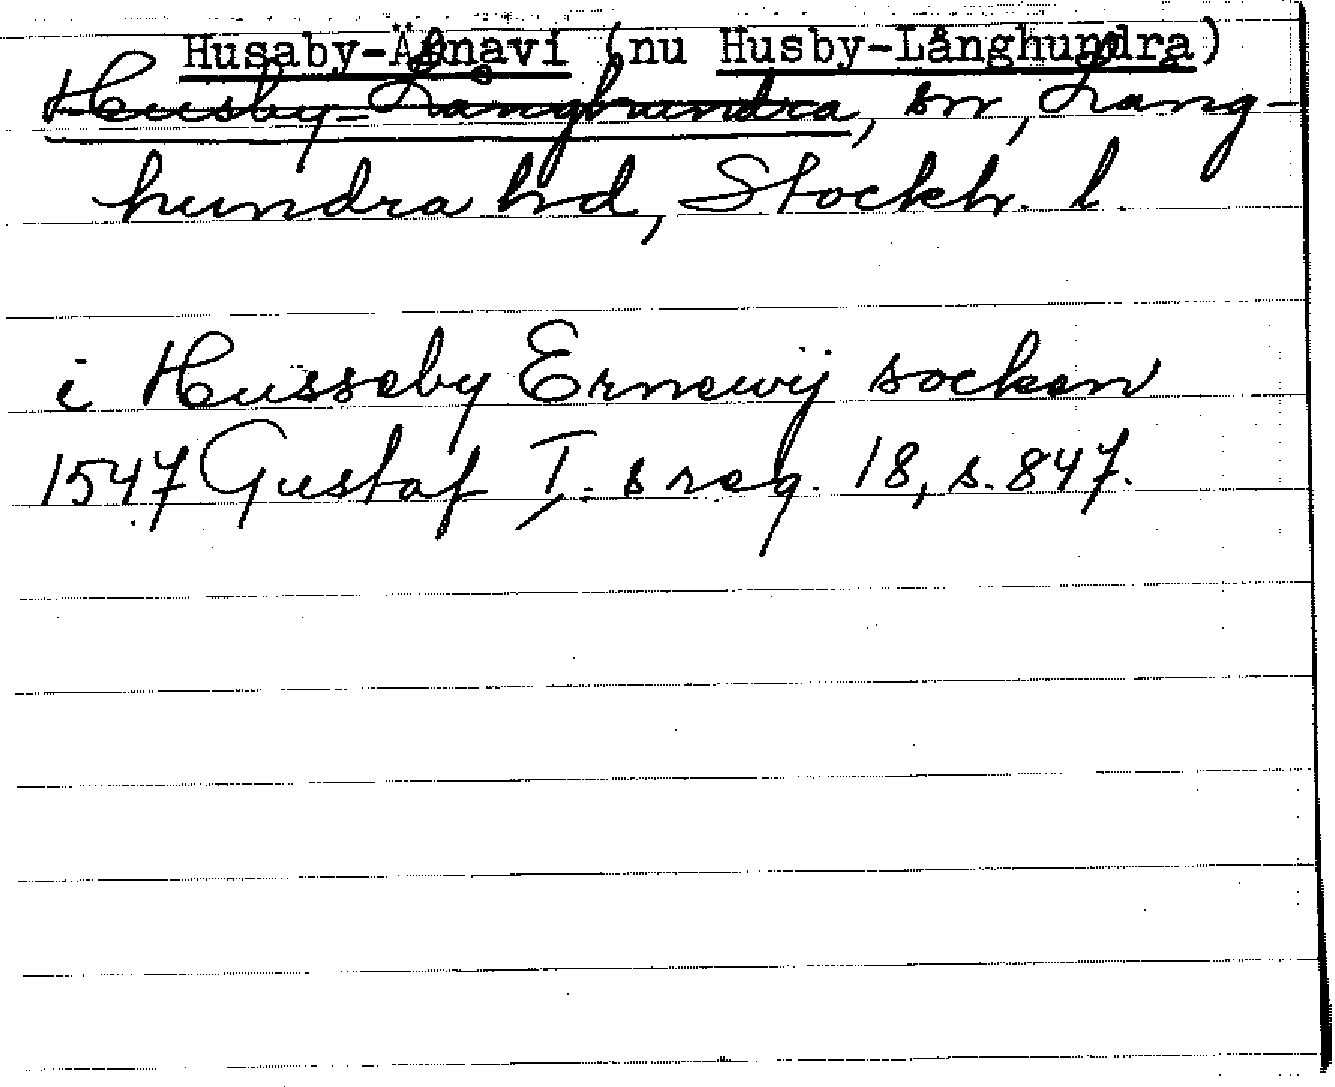 Husaby-Ärnavi (nu Husby-Långhundra)
Husby-Långhundra, sn, Lång-
hundra hd, Stockh. l.
i Husseby Ernewij socken
1547 Gustaf I:s reg. 18, s. 847.